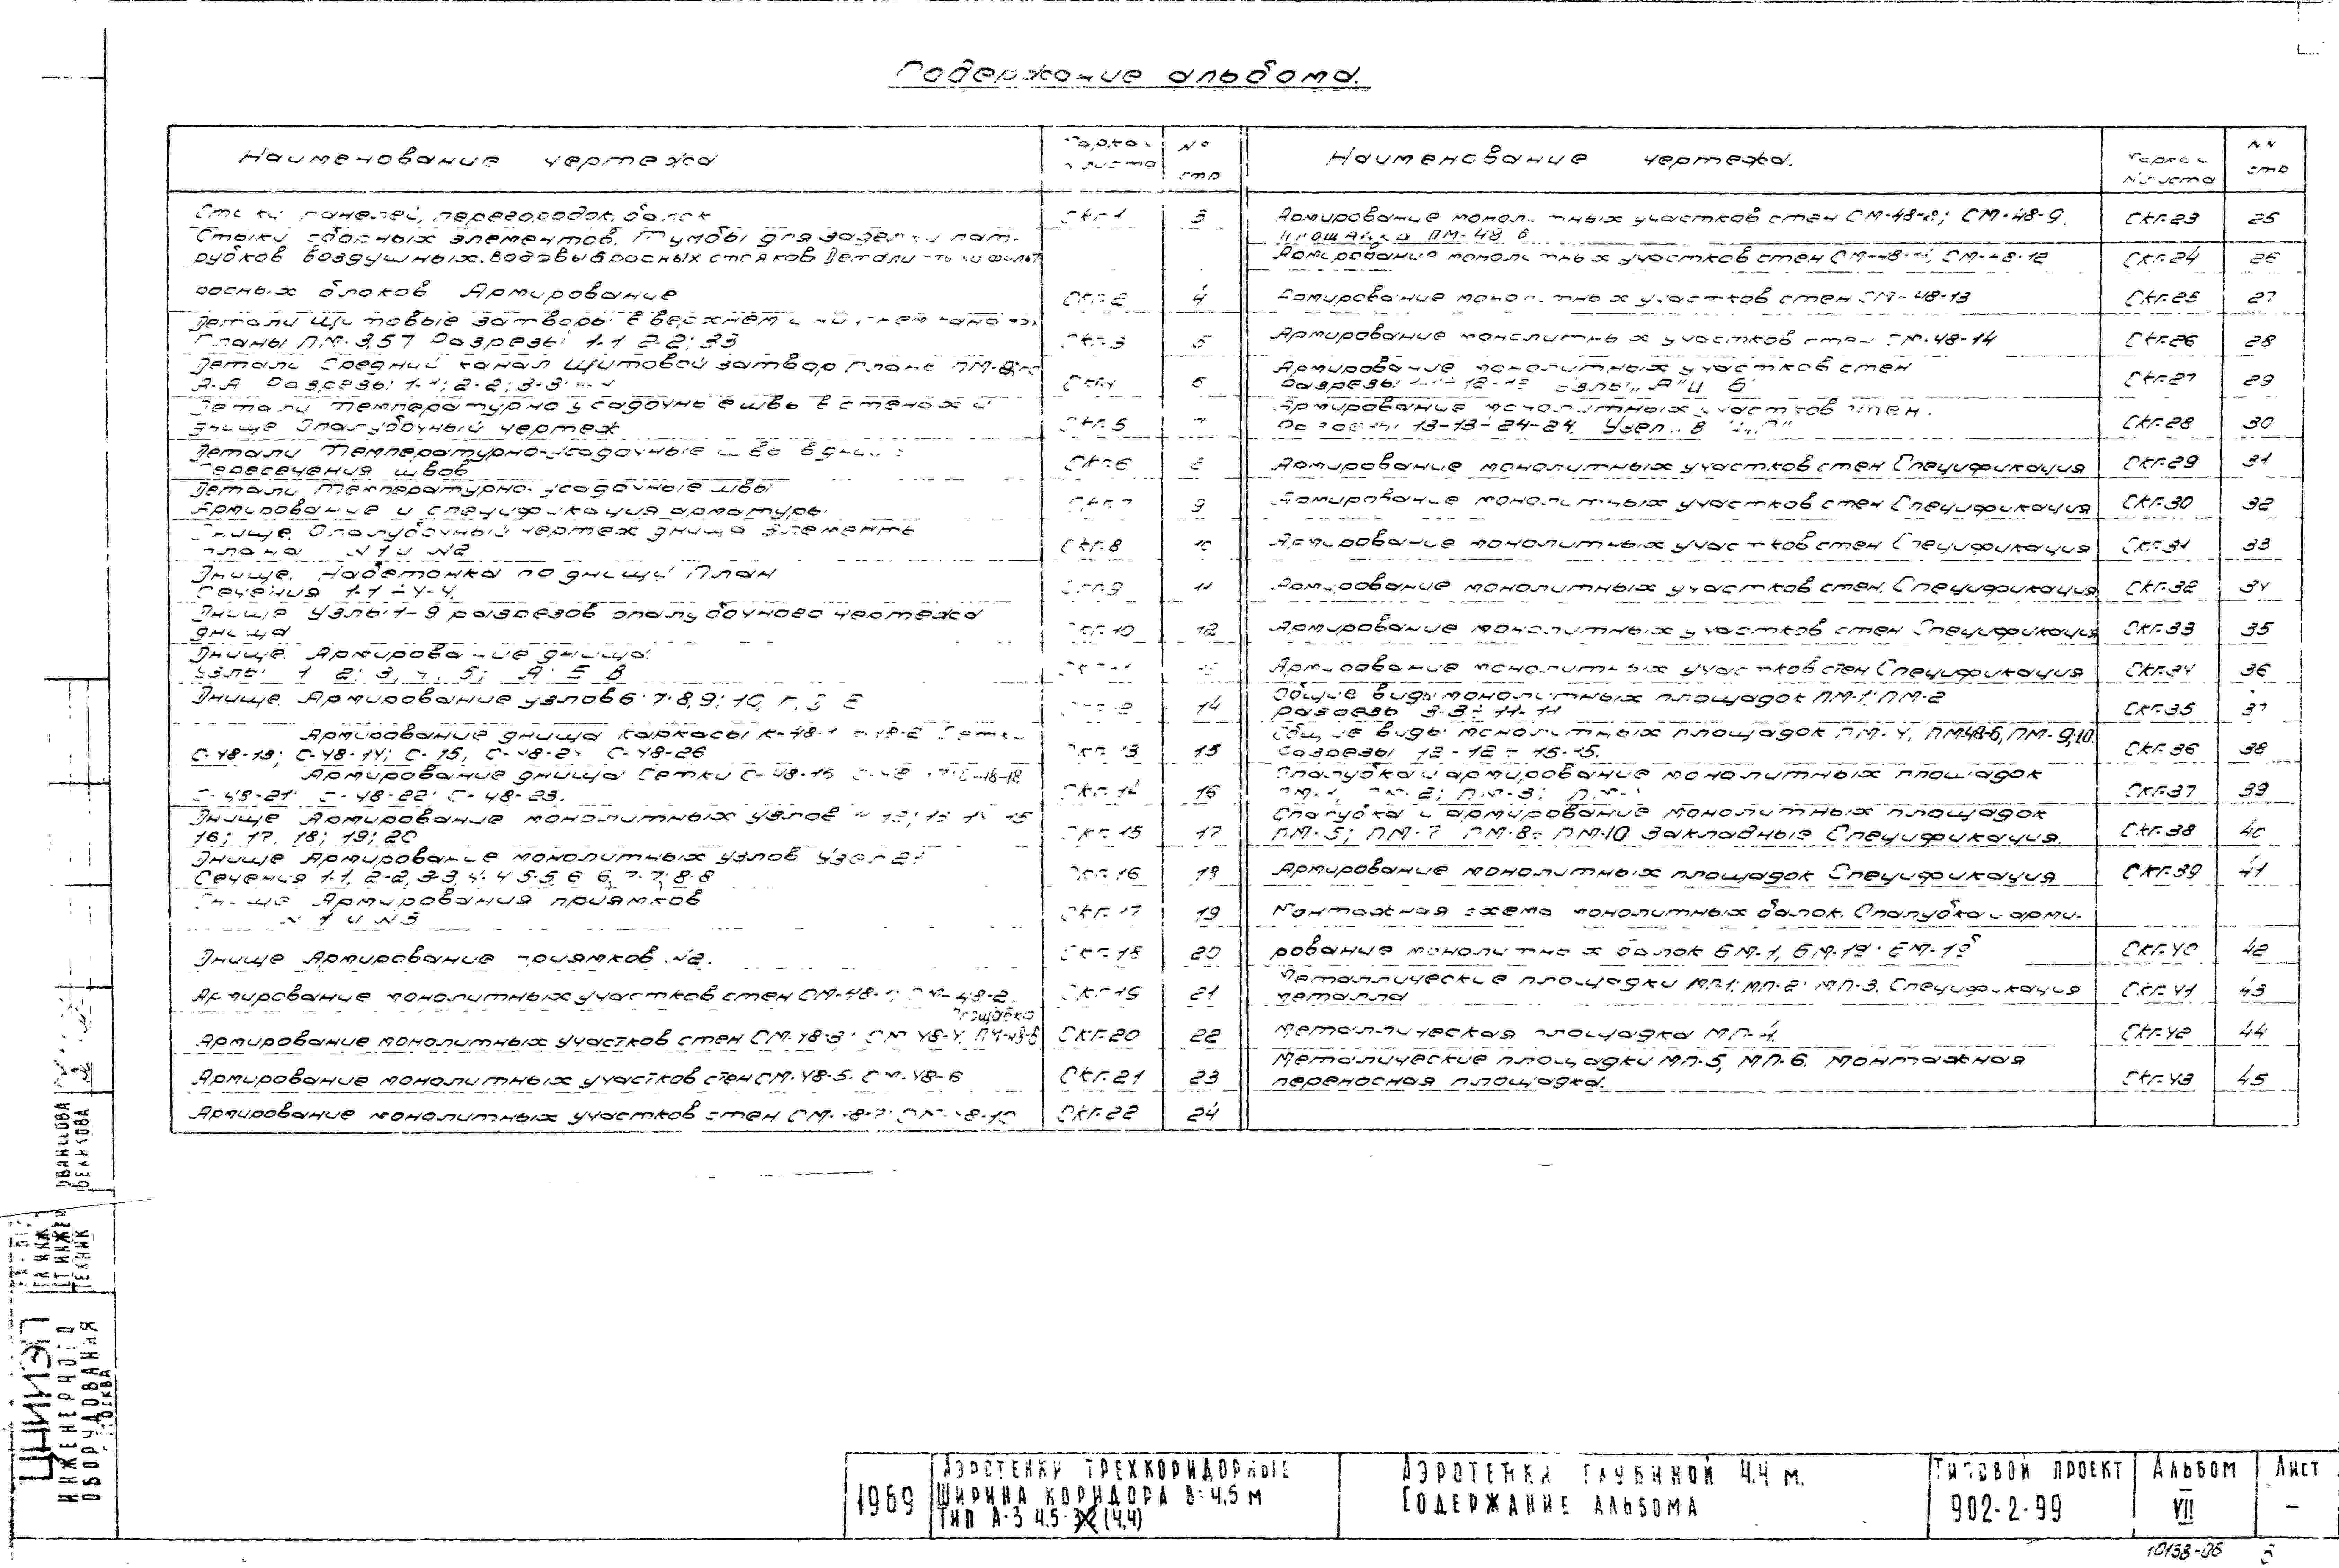 Содержание альбома.
Наименование чертежа
Марка и № листа
№ стр
Наименование чертежа.
Марка и № листа
NN стр
Стыки панелей, перегородок, балок СКГ-1 3
Стыки сборных элементов. Тумбы для заделки пат-
рубков воздушных, водовыбросных стояков Детали
росных блоков Армирование СКГ-2 4
Детали Щитовые затворы в верхнем и нижнем
Планы ПМ-3,5,7 Разрезы 1-1 2-2; 3-3 СКГ-3 5
Детали Средний канал Щитовой затвор
А-А Разрезы 1-1; 2-2; 3-3 6
Детали Температурно усадочные швы в стенах и
днище Опалубочный чертеж СКГ-5
Детали Температурно-усадочные швы
Пересечения швов СКГ-6
Детали Температурно-усадочные швы
Армирование и спецификация арматуры 9
Днище. Опалубочный чертеж днища Элементы
плана N1 и N2 СКГ-8 10
Днище. Набетонка по днищу План
Сечения 1-1 ÷ 4-4. СКГ-9 11
Днище Узлы 1-9 разрезов опалубочного чертежа
днища СКГ-10 12
Днище. Армирование днища.
Узлы 1 2; 3, 4, 5; А Б В
Днище. Армирование узлов 6 7 8, 9; 10, Г, 14
Армирование днища каркасы К-48-1
С-48-13; С-48-14; С-15, С-48-26 СКГ-13 15
Армирование днища Сетки С-48-16 С-48-18
С-48-21 С-48-22 С-48-23. СКГ-14 16
Днище Армирование монолитных узлов
16; 17, 18; 19; 20 СКГ-15 17
Днище Армирование монолитных узлов Узел 21
Сечения 1-1, 2-2, 3-3, 4-4 5-5, 6-6, 7-7, 8-8 СКГ-16 18
Днище Армирования приямков
N1 и N3 СКГ-17 19
Днище Армирование приямков N2. СКГ-18 20
Армирование монолитных участков стен СМ-48-1 СМ-48-2. СКГ-19 21
площадка
Армирование монолитных участков стен СМ-48-3 СМ-48-4, ПМ-48-6 СКГ-20 22
Армирование монолитных участков стен СМ-48-5 СМ-48-6 СКГ-21 23
Армирование монолитных участков стен СМ-48-7 СМ-48-10 СКГ-22 24
Армирование монолитных участков стен СМ-48-8; СМ-48-9. СКГ-23 25
Площадка ПМ-48 6
Армирование монолитных участков стен СМ-48-12 СКГ-24 26
Армирование монолитных участков стен СМ-48-13 СКГ-25 27
Армирование монолитных участков стен СМ-48-14 СКГ-26 28
Армирование монолитных участков стен
Разрезы Узлы „А" и Б СКГ-27 29
Армирование монолитных участков стен.
Разрезы 13-13 ÷ 24-24. Узел СКГ-28 30
Армирование монолитных участков стен Спецификация СКГ-29 31
Армирование монолитных участков стен Спецификация СКГ-30 32
Армирование монолитных участков стен Спецификация СКГ-31 33
Армирование монолитных участков стен. Спецификация СКГ-32 34
Армирование монолитных участков стен Спецификация СКГ-33 35
Армирование монолитных участков стен Спецификация СКГ-34 36
Общие виды монолитных площадок ПМ-1; ПМ-2
разрезы 3-3 ÷ 11-11 СКГ-35 37
Общие виды монолитных площадок ПМ-4, ПМ48-6, ПМ-9,10.
Разрезы 12-12 ÷ 15-15. СКГ-36 38
Опалубка и армирование монолитных площадок
ПМ-1, ПМ-2; ПМ-3; СКГ-37 39
Опалубка и армирование монолитных площадок
ПМ-5; ПМ-7 ПМ-8 ÷ ПМ-10 Закладные Спецификация. СКГ-38 40
Армирование монолитных площадок Спецификация СКГ-39 41
Монтажная схема монолитных балок. Опалубка и арми-
рование монолитных балок БМ-1, БМ-1а БМ-1б СКГ-40 42
Металлические площадки МП-1; МП-2; МП-3. Спецификация
металла СКГ-41 43
Металлическая площадка МП-4. СКГ-42 44
Металические площадки МП-5, МП-6. Монтажная
переносная площадка. СКГ-43 45
ИВАНЦОВА
ВЕЛИКОВА
ГЛ ИНЖ
СТ ИНЖЕН
ТЕХНИК
ЦНИИЭП
ИНЖЕНЕРНОГО
ОБОРУДОВАНИЯ
МОСКВА
1969
АЭРОТЕНКИ ТРЕХКОРИДОРНЫЕ
ШИРИНА КОРИДОРА В=4,5 М
ТИП А-3 4,5-3,2 (4,4)
АЭРОТЕНКИ ГЛУБИНОЙ 4,4 М.
СОДЕРЖАНИЕ АЛЬБОМА
ТИПОВОЙ ПРОЕКТ
902-2-99
АЛЬБОМ
VII
ЛИСТ
–
10138-06 3